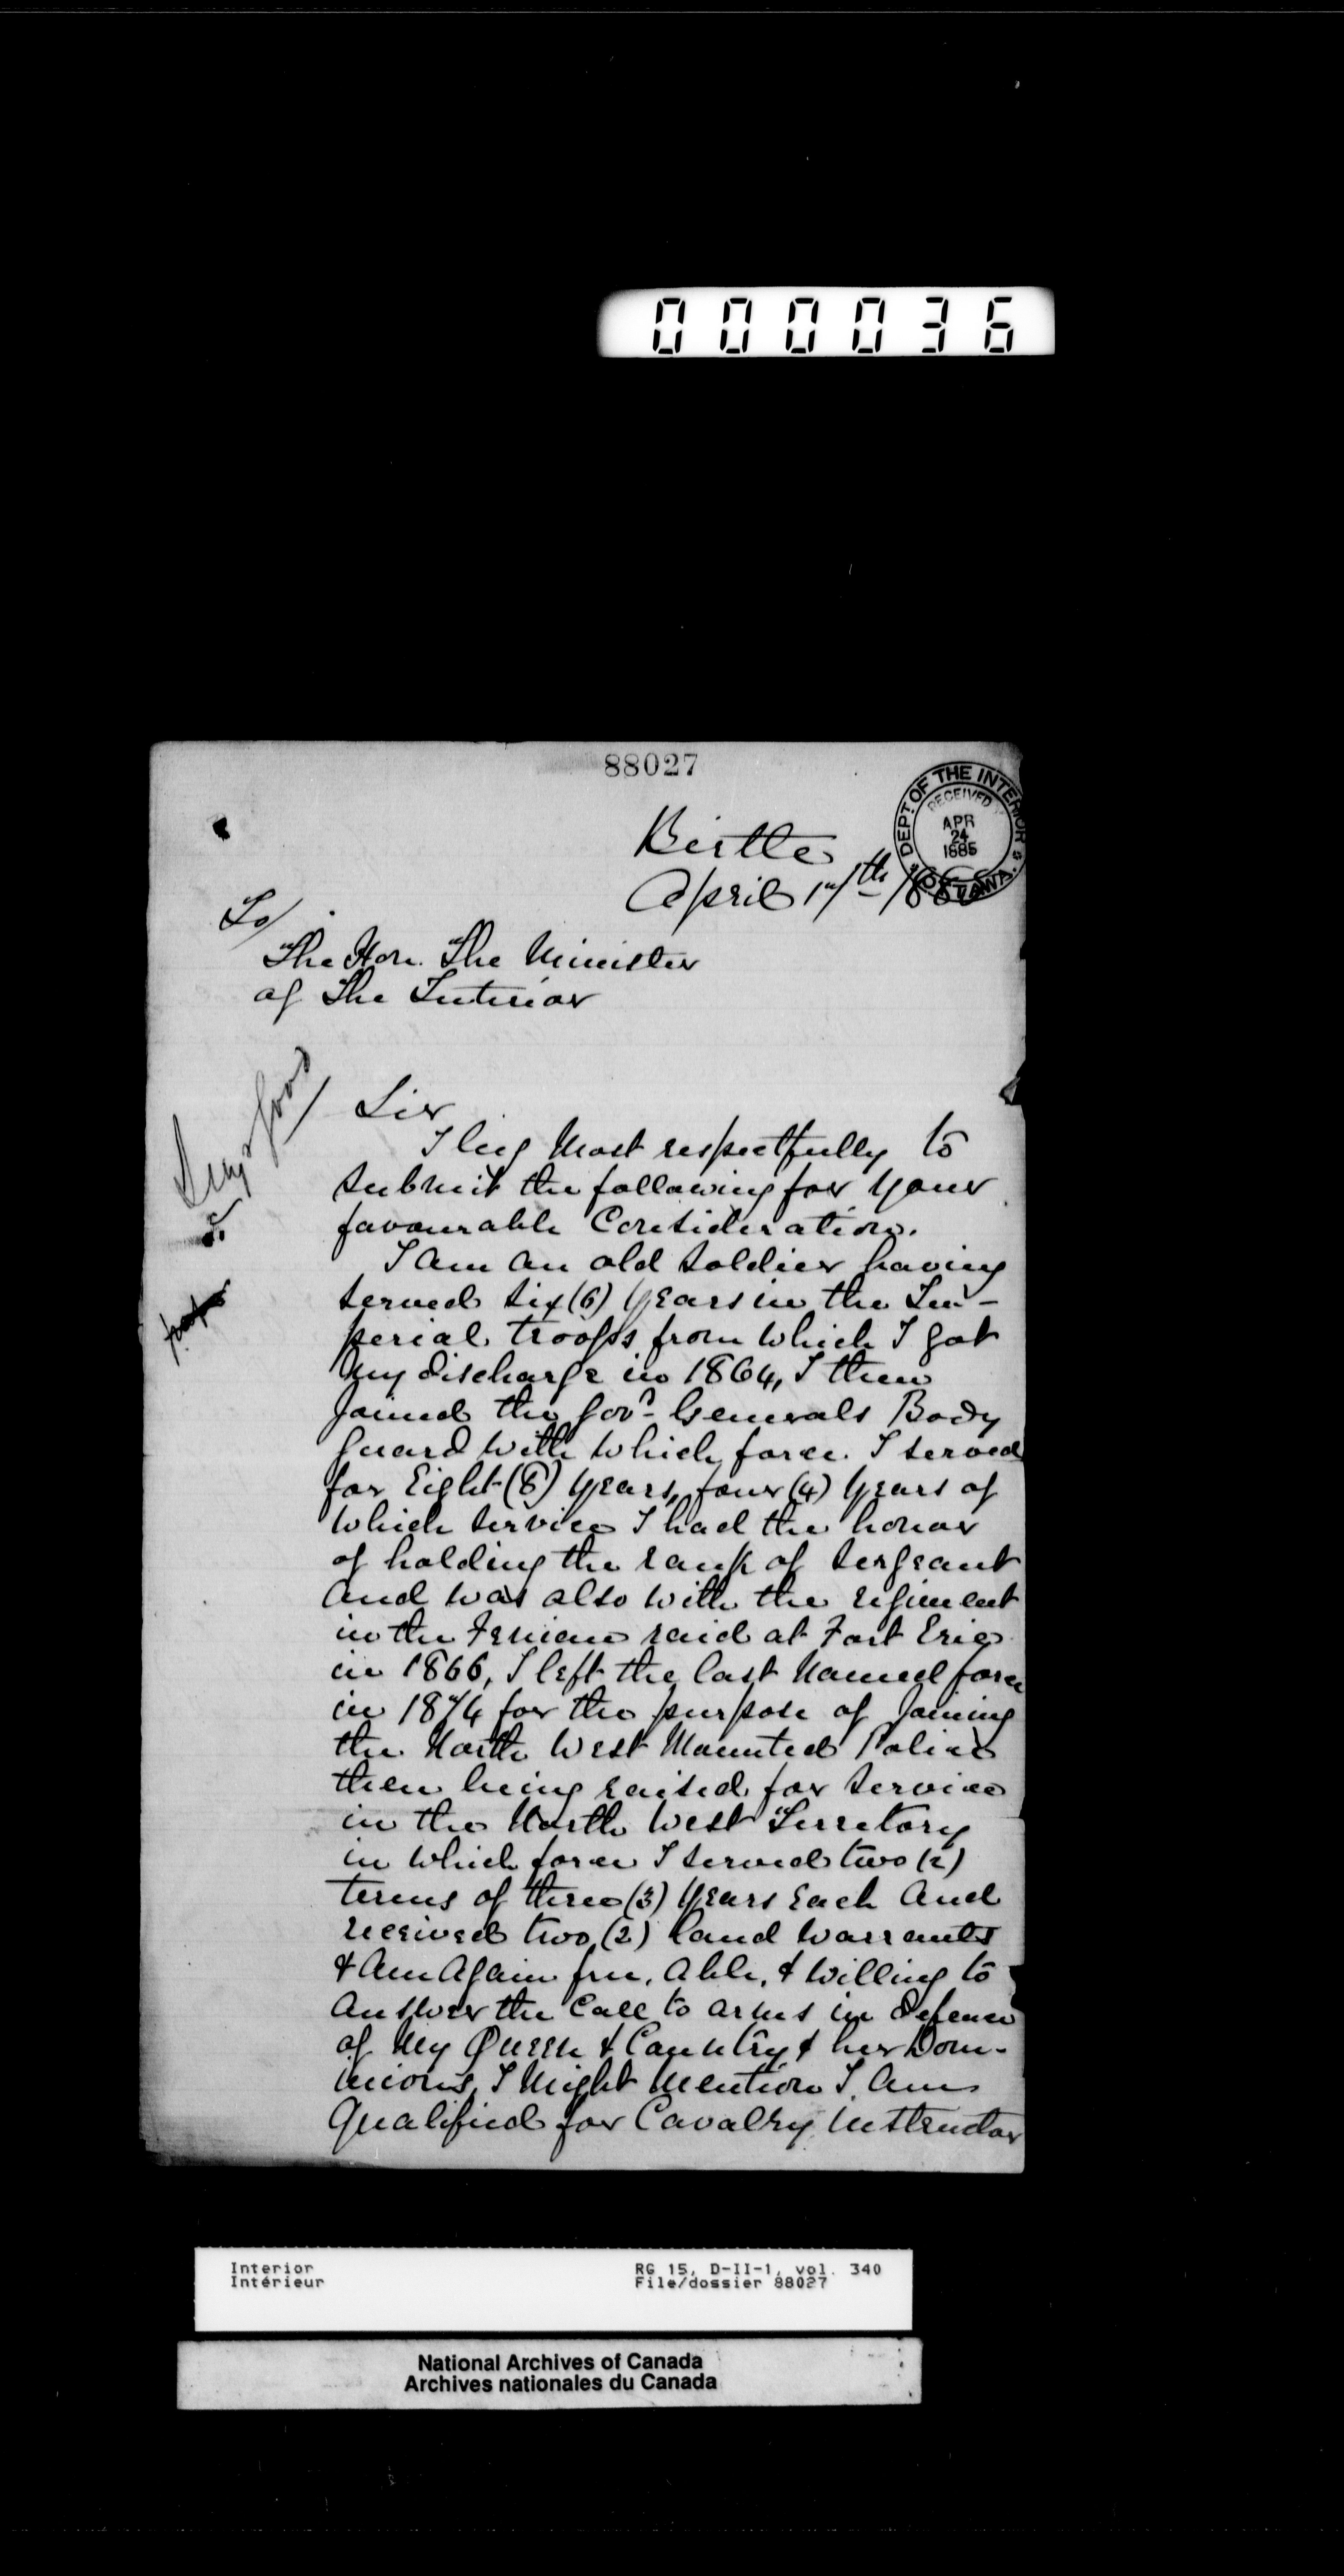 000036
88027
DEPT. OF THE INTERIOR
RECEIVED
APR
24
1885
OTTAWA.
Birtle
April 17th 1885
To/
The Hon. The Minister
of The Interior
Sir
I beg Most respectfully to
submit the following for your
favourable Consideration.
I Am An old Soldier having
served six (6) years in the Im-
perial troops from which I got
My discharge in 1864, I then
Joined the Govr Generals Body
Guard with which force I served
for Eight (8) years, four (4) years of
which service I had the honor
of holding the rank of Sergeant
And was also with the regiment
in the Fenian raid at Fort Erie
in 1866, I left the last Named force
in 1874 for the purpose of Joining
the North West Mounted Police
then being raised for service
in the North West Territory
in which force I served two (2)
terms of three (3) years Each And
received two (2) land warrants
& Am Again free, Able, & willing to
Answer the Call to arms in defence
of My Queen & Country & her Dom-
inions, I Might Mention I Am
Qualified for Cavalry Instructor
Interior
Intérieur
RG 15, D-II-1, vol. 340
File/dossier 88027
National Archives of Canada
Archives nationales du Canada